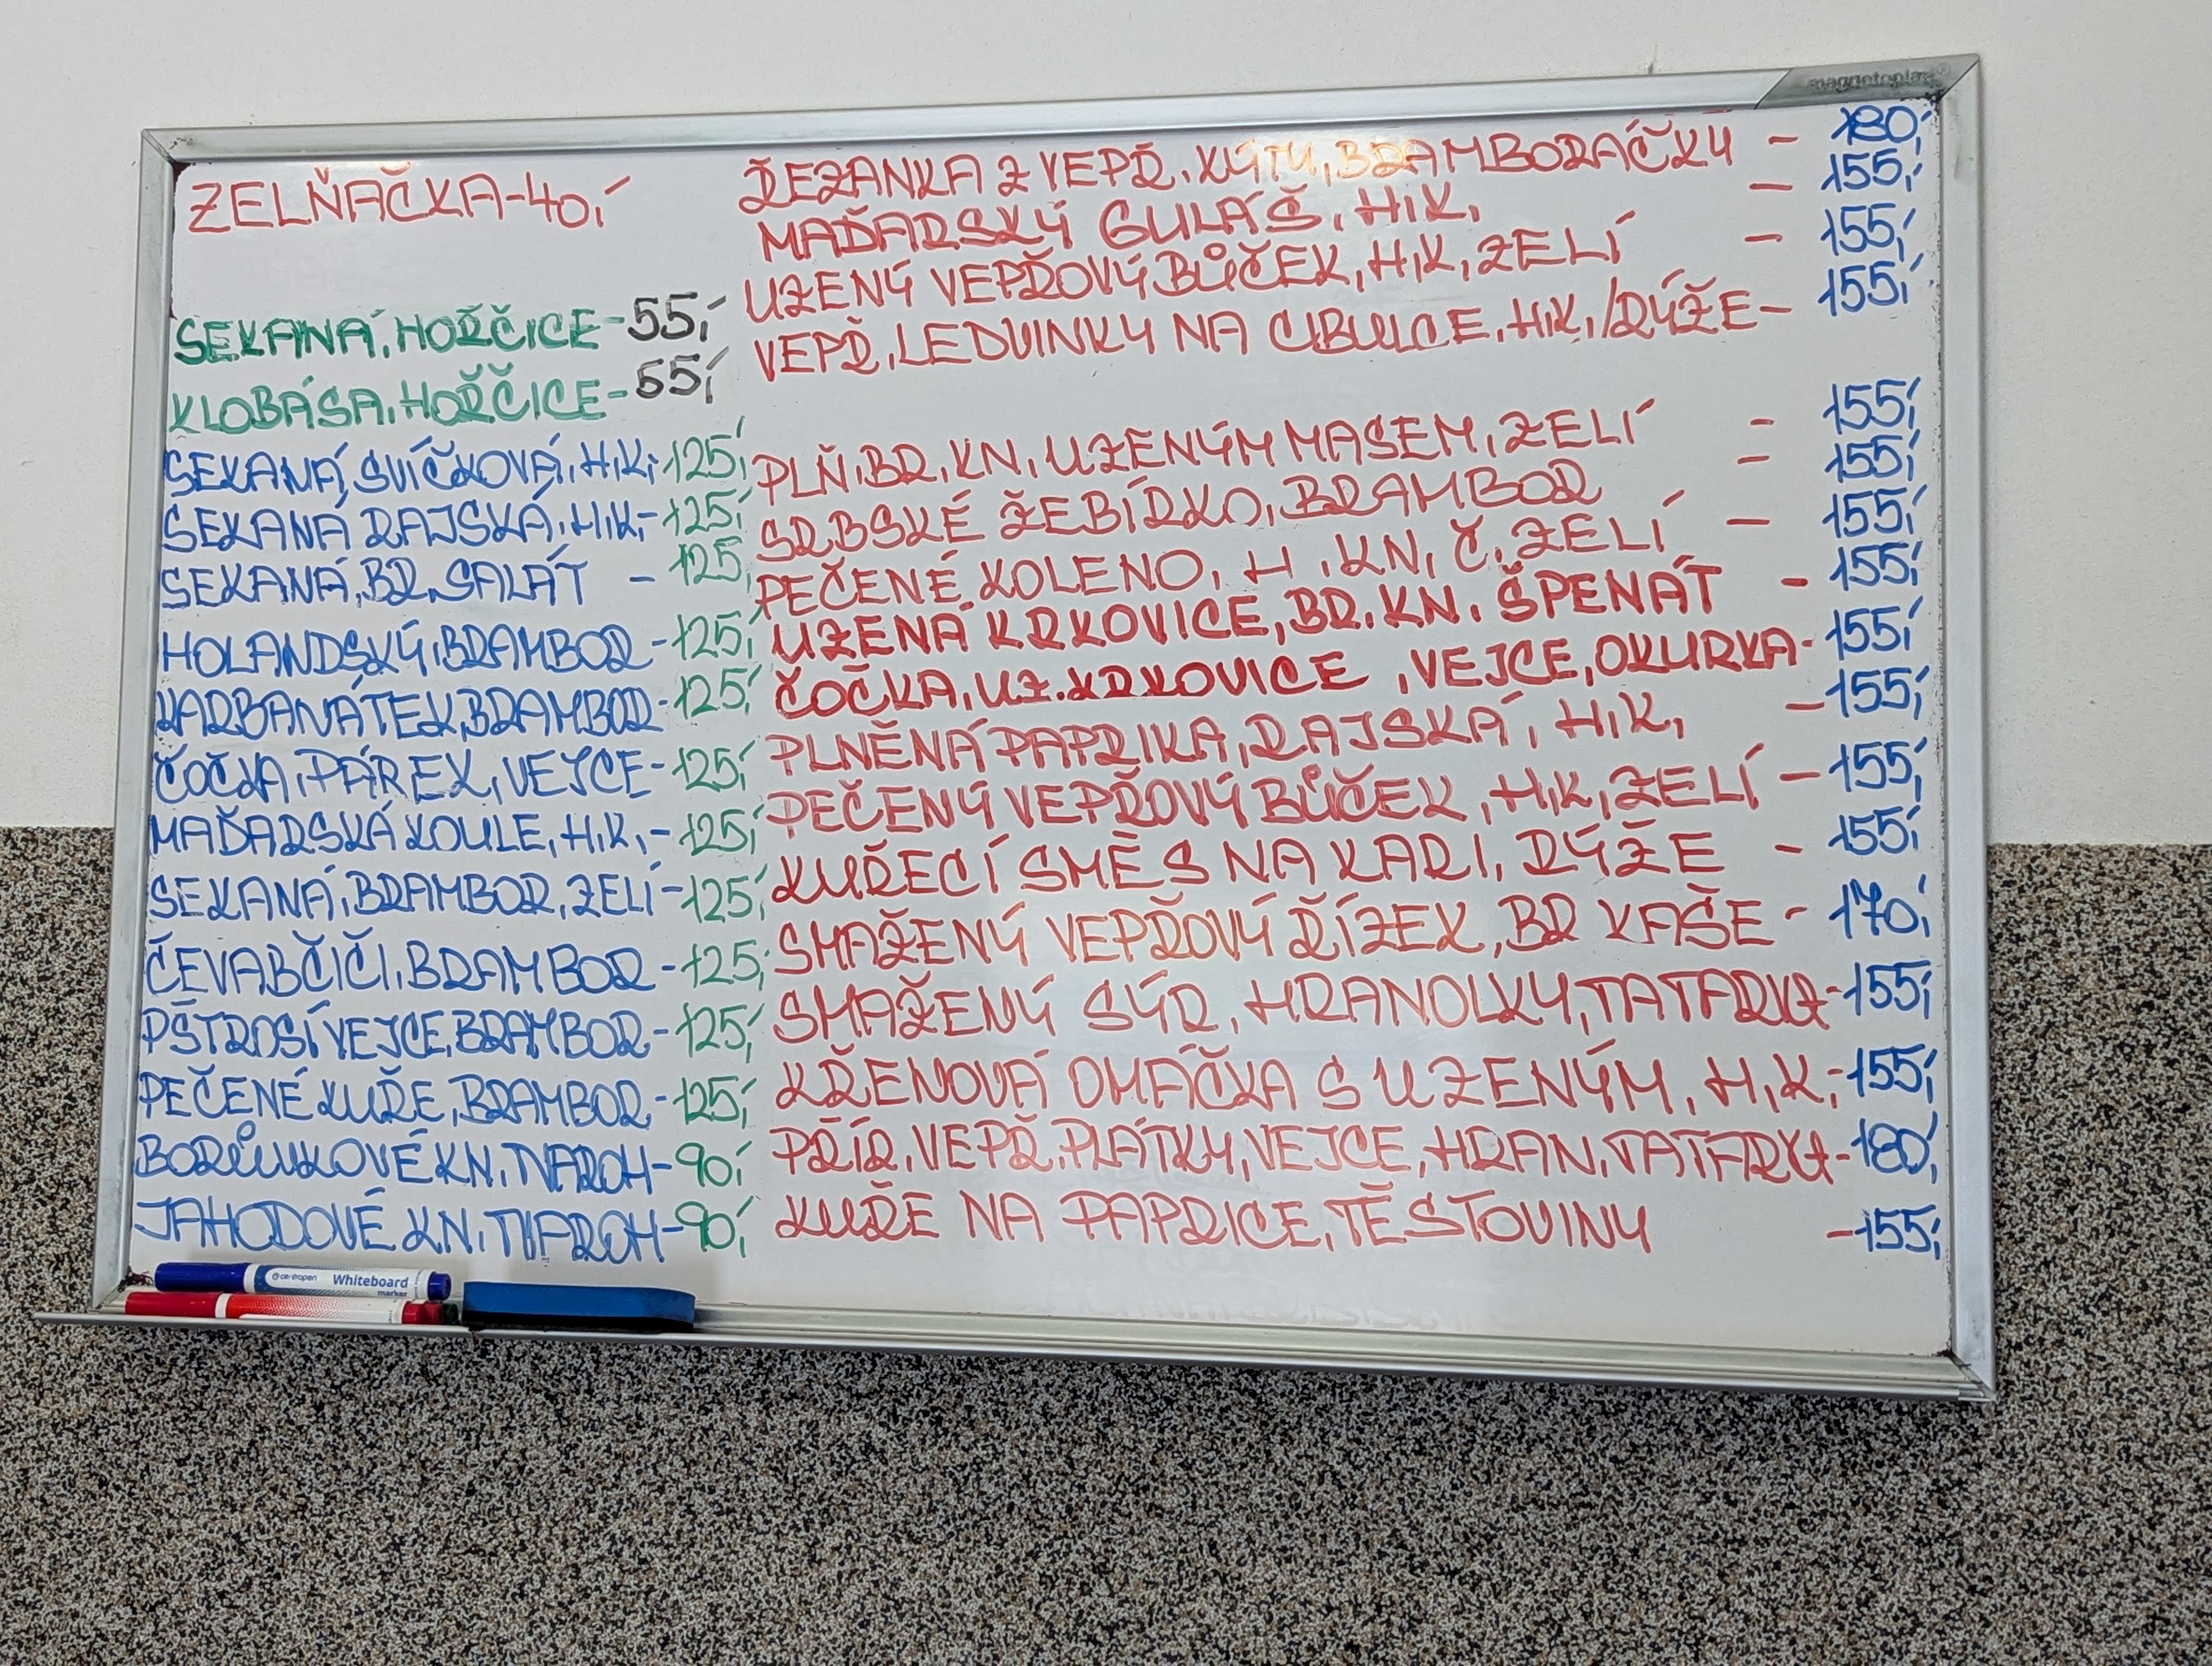 magnetoplan®
ZELŇAČKA-40,-
SEKANÁ, HOŘČICE-55,-
KLOBÁSA, HOŘČICE-55,-
SEKANÁ, SVÍČKOVÁ, H.K,-125,-
SEKANÁ RAJSKÁ, H.K,-125,-
SEKANÁ, BR. SALÁT -125,
HOLANDSKÝ, BRAMBOR-125,-
KARBANÁTEK, BRAMBOR-125,-
ČOČKA, PÁREK, VEJCE-125,-
MAĎARSKÁ KOULE, H.K,-125,-
SEKANÁ, BRAMBOR, ZELÍ-125,-
ČEVABČIČI, BRAMBOR-125,-
PŠTROSÍ VEJCE, BRAMBOR-125,-
PEČENÉ KUŘE, BRAMBOR-125,-
BORŮVKOVÉ KN, TVAROH-90,-
JAHODOVÉ KN, TVAROH-90,-
ŘEZANKA Z VEPŘ. KÝTY, BRAMBORÁČKY - 180,-
MAĎARSKÝ GULÁŠ, H.K, - 155,-
UZENÝ VEPŘOVÝ BŮČEK, H.K, ZELÍ - 155,-
VEPŘ. LEDVINKY NA CIBULCE, H.K, /RÝŽE- 155,-
PLŇ. BR. KN. UZENÝM MASEM, ZELÍ - 155,-
SRBSKÉ ŽEBÍRKO, BRAMBOR - 155,-
PEČENÉ KOLENO, H. KN, Č. ZELÍ - 155,-
UZENÁ KRKOVICE, BR. KN. ŠPENÁT - 155,-
ČOČKA, UZ. KRKOVICE, VEJCE, OKURKA- 155,-
PLNĚNÁ PAPRIKA, RAJSKÁ, H.K, - 155,-
PEČENÝ VEPŘOVÝ BŮČEK, H.K, ZELÍ - 155,-
KUŘECÍ SMĚS NA KARI, RÝŽE - 155,-
SMAŽENÝ VEPŘOVÝ ŘÍZEK, BR KAŠE - 170,-
SMAŽENÝ SÝR, HRANOLKY, TATARKA-155,-
KŘENOVÁ OMÁČKA S UZENÝM, H.K,-155,-
PŘÍR. VEPŘ. PLÁTKY, VEJCE, HRAN, TATARKA-180,-
KUŘE NA PAPRICE, TĚSTOVINY -155,-
centropen Whiteboard
marker